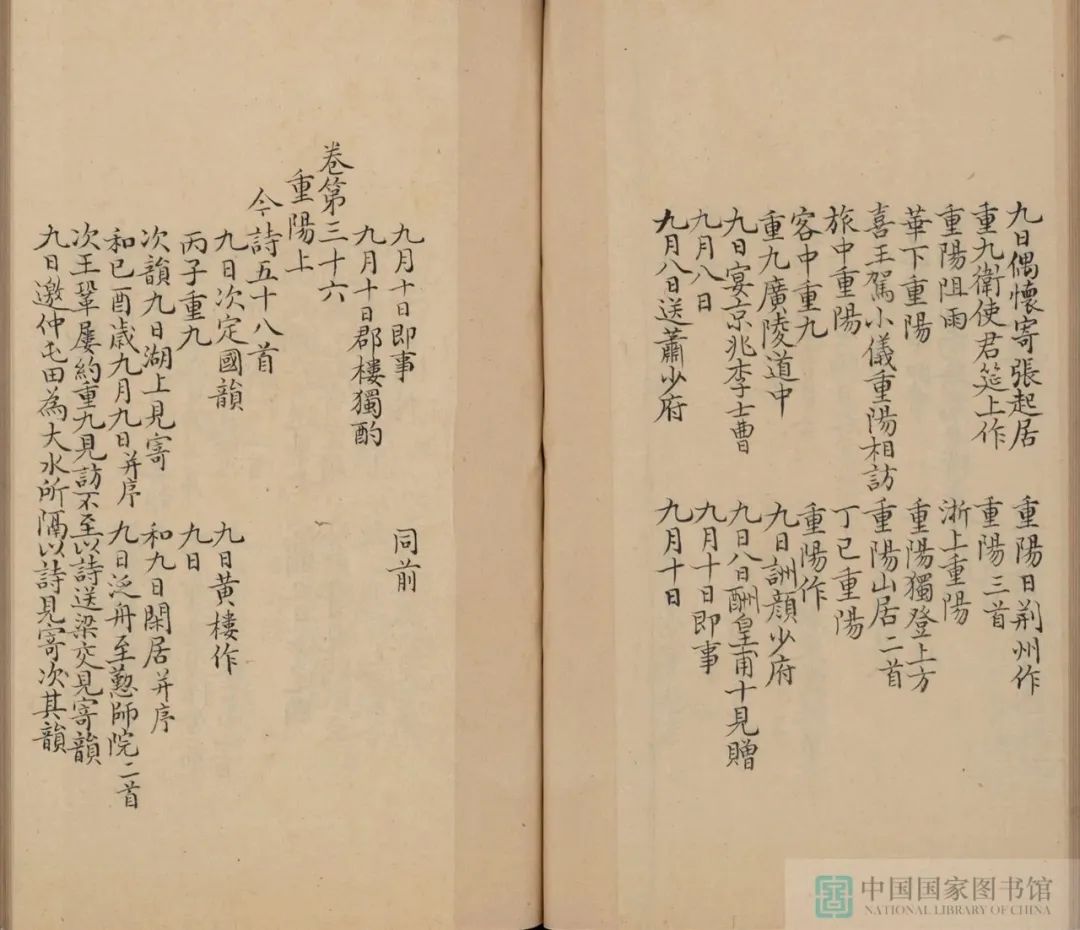 九日偶懷寄張起居
重陽日荆州作
重九衛使君筵上作
重陽三首
重陽阻雨
浙上重陽
華下重陽
重陽獨登上方
喜王駕小儀重陽相訪
重陽山居二首
旅中重陽
丁巳重陽
客中重九
重陽作
重九廣陵道中
九日詶顔少府
九日宴京兆李士曹
九日八日酬皇甫十見贈
九月八日
九月十日即事
九月八日送蕭少府
九月十日
九月十日即事
同前
九月十日郡樓獨酌
卷第三十六
重陽上
今詩五十八首
九日次定國韻
九日黃樓作
丙子重九
九日
次韻九日湖上見寄
和九日閑居并序
和己酉歲九月九日并序
九日泛舟至懃師院二首
次王鞏屢約重九見訪不至以詩送梁交見寄韻
九日邀仲屯田為大水所隔以詩見寄次其韻
中国国家图书馆
NATIONAL LIBRARY OF CHINA